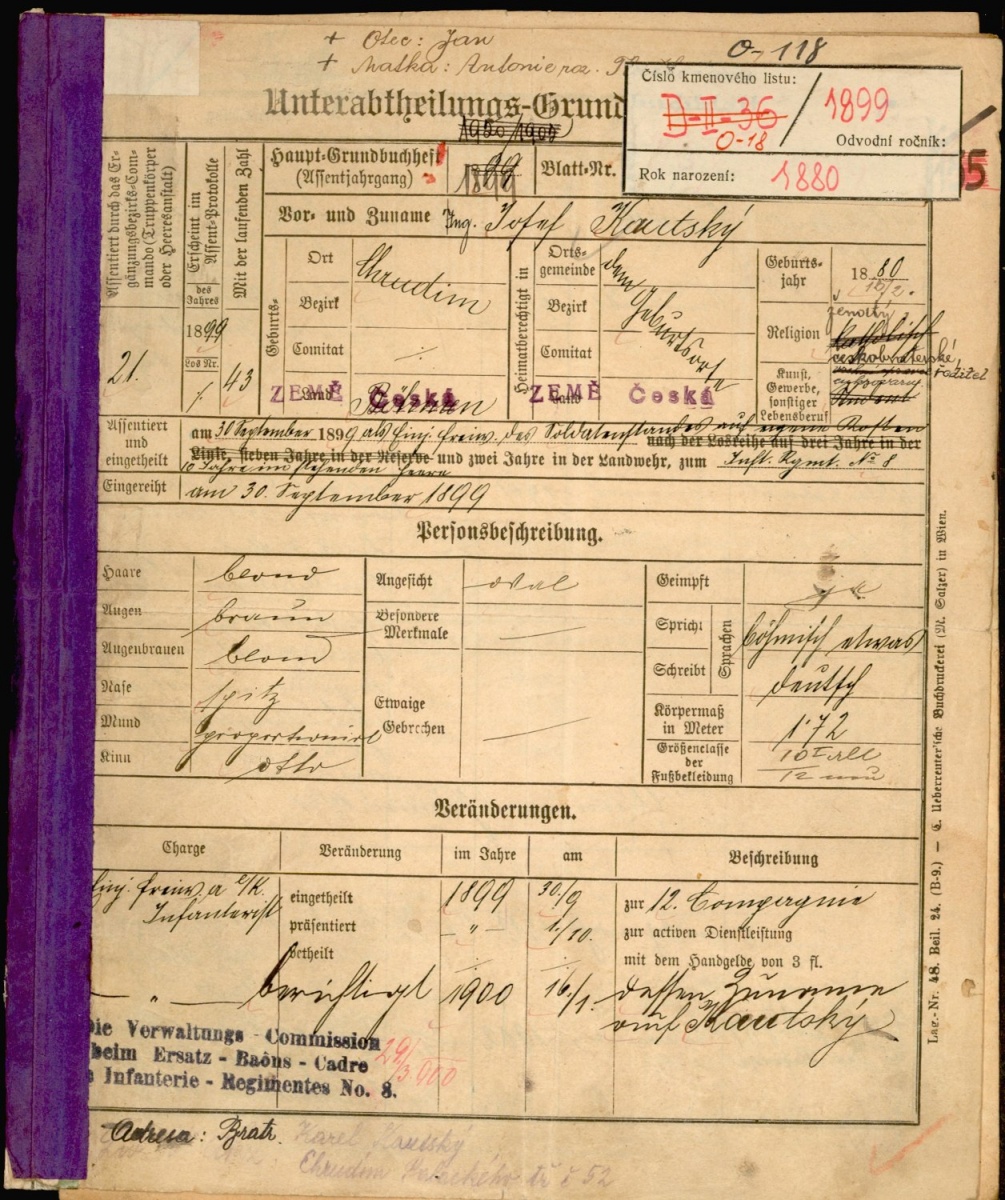 + Otec: Jan
+ Matka: Antonie roz.
O-118
Číslo kmenového listu:
D-II-36 / 1899
O-18
Odvodní ročník:
Rok narození: 1880
Unterabtheilungs-Grund
1900/1900
Haupt-Grundbuchheft
(Assentjahrgang)
1899
Blatt-Nr.
Assentiert durch das Er-
gänzungsbezirks-Com-
mando (Truppenkörper
oder Heeresanstalt)
21.
Erscheint im
Assent-Protokolle
des
Jahres
1899
Los Nr.
Mit der laufenden Zahl
43
Vor- und Zuname Ing. Josef Kautský
Geburts-
Ort Chrudim
Bezirk
Comitat
Land Böhmen
ZEMĚ Česká
Heimatberechtigt in
Orts-
gemeinde dem Geburtsorte
Bezirk
Comitat
Land
ZEMĚ Česká
Geburts-
jahr 1880
10/2.
Religion katholisch
českobratrské
Kunst,
Gewerbe,
sonstiger
Lebensberuf
Student
ředitel
Assentiert
und
eingetheilt
am 30 September 1899 als Einj. freiw. des Soldatenstandes auf eigene Kosten
nach der Losreihe auf drei Jahre in der
Linie, sieben Jahre in der Reserve und zwei Jahre in der Landwehr, zum Inft. Rgmt. No 8
10 Jahre im stehenden Heere
Eingereiht am 30. September 1899
Personsbeschreibung.
Haare blond
Augen braun
Augenbrauen blond
Nase spitz
Mund proportionirt
Kinn otto
Angesicht oval
Besondere
Merkmale
Etwaige
Gebrechen
Geimpft ja
Spricht
Schreibt
Sprachen
böhmisch etwas
deutsch
Körpermaß
in Meter 1·72
Größenclasse
der
Fußbekleidung
10 I alt
12 neu
Veränderungen.
Charge Veränderung im Jahre am Beschreibung
Einj. freiw. a e/K. Infanterist
eingetheilt 1899 30./9 zur 12. Compagnie
präsentiert -"- 1./10. zur activen Dienstleistung
betheilt mit dem Handgelde von 3 fl.
— " — berichtigt 1900 16./1. dessen Zuname
auf Kautský
Die Verwaltungs-Commission
beim Ersatz-Baons-Cadre
Infanterie-Regimentes No. 8.
29/3 900
Adresa: Bratr. Karel Kautský
Chrudim Palackého tř č 52
Lag.-Nr. 48. Beil. 24. (B-9.) — C. Ueberreuter'sche Buchdruckerei (M. Salzer) in Wien.